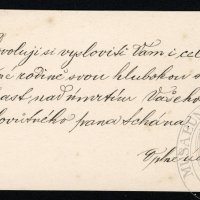 ovoluji si vysloviti Vám i cel
né rodině svou hlubokou s
ast nad úmrtím Vašeho
ovutného pana tchána
Úplně
MASARY